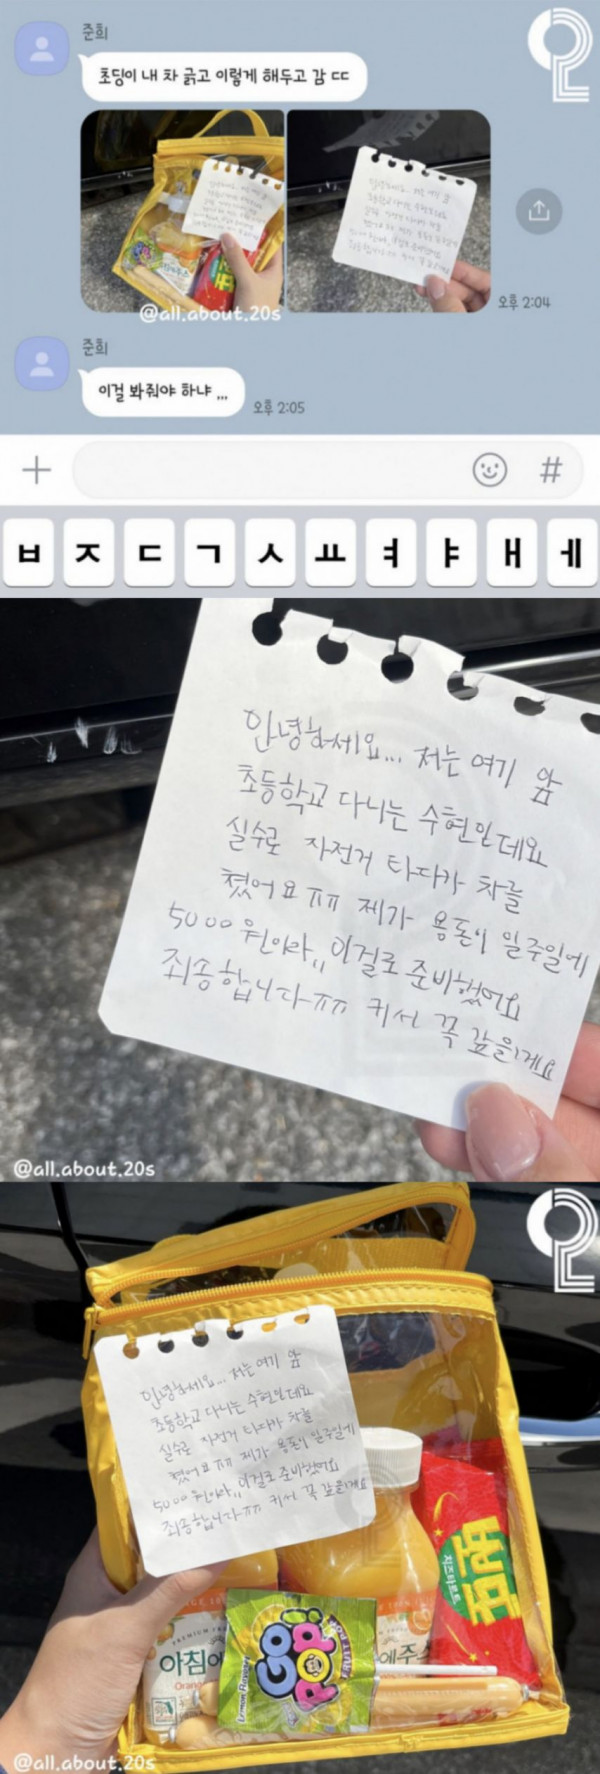 준희
초딩이 내 차 긁고 이렇게 해두고 감 ㄷㄷ
@all.about.20s
오후 2:04
준희
이걸 봐줘야 하냐 ,,,
오후 2:05
#
ㅂ ㅈ ㄷ ㄱ ㅅ ㅛ ㅕ ㅑ ㅐ ㅔ
안녕하세요... 저는 여기 앞
초등학교 다니는 수현인데요
실수로 자전거 타다가 차를
쳤어요 ㅠㅠ 제가 용돈이 일주일에
5000원이라,, 이걸로 준비했어요
죄송합니다ㅠㅠ 커서 꼭 갚을게요
@all.about.20s
안녕하세요... 저는 여기 앞
초등학교 다니는 수현인데요
실수로 자전거 타다가 차를
쳤어요 ㅠㅠ 제가 용돈이 일주일에
5000원이라,, 이걸로 준비했어요
죄송합니다ㅠㅠ 커서 꼭 갚을게요
치즈타르트
아침에
Orang
에주스
GO
POP!
Lemon Flavour
@all.about.20s